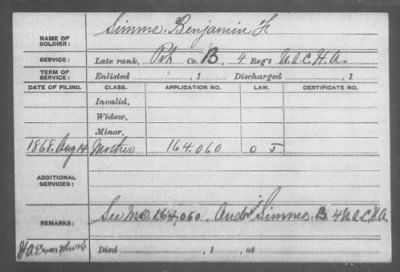 NAME OF SOLDIER: Simms, Benjamin F
SERVICE: Late rank, Pvt Co. B, 4 Reg't U.S.C.H.A.
TERM OF SERVICE: Enlisted , 1 Discharged , 1
DATE OF FILING. CLASS. APPLICATION NO. LAW. CERTIFICATE NO.
Invalid,
Widow,
Minor,
1868. Aug 14 Mother 164.060
ADDITIONAL SERVICES:
REMARKS: See Mo 164,060. Simms. B 4 U.S.C.H.A.
Died , 1 , at